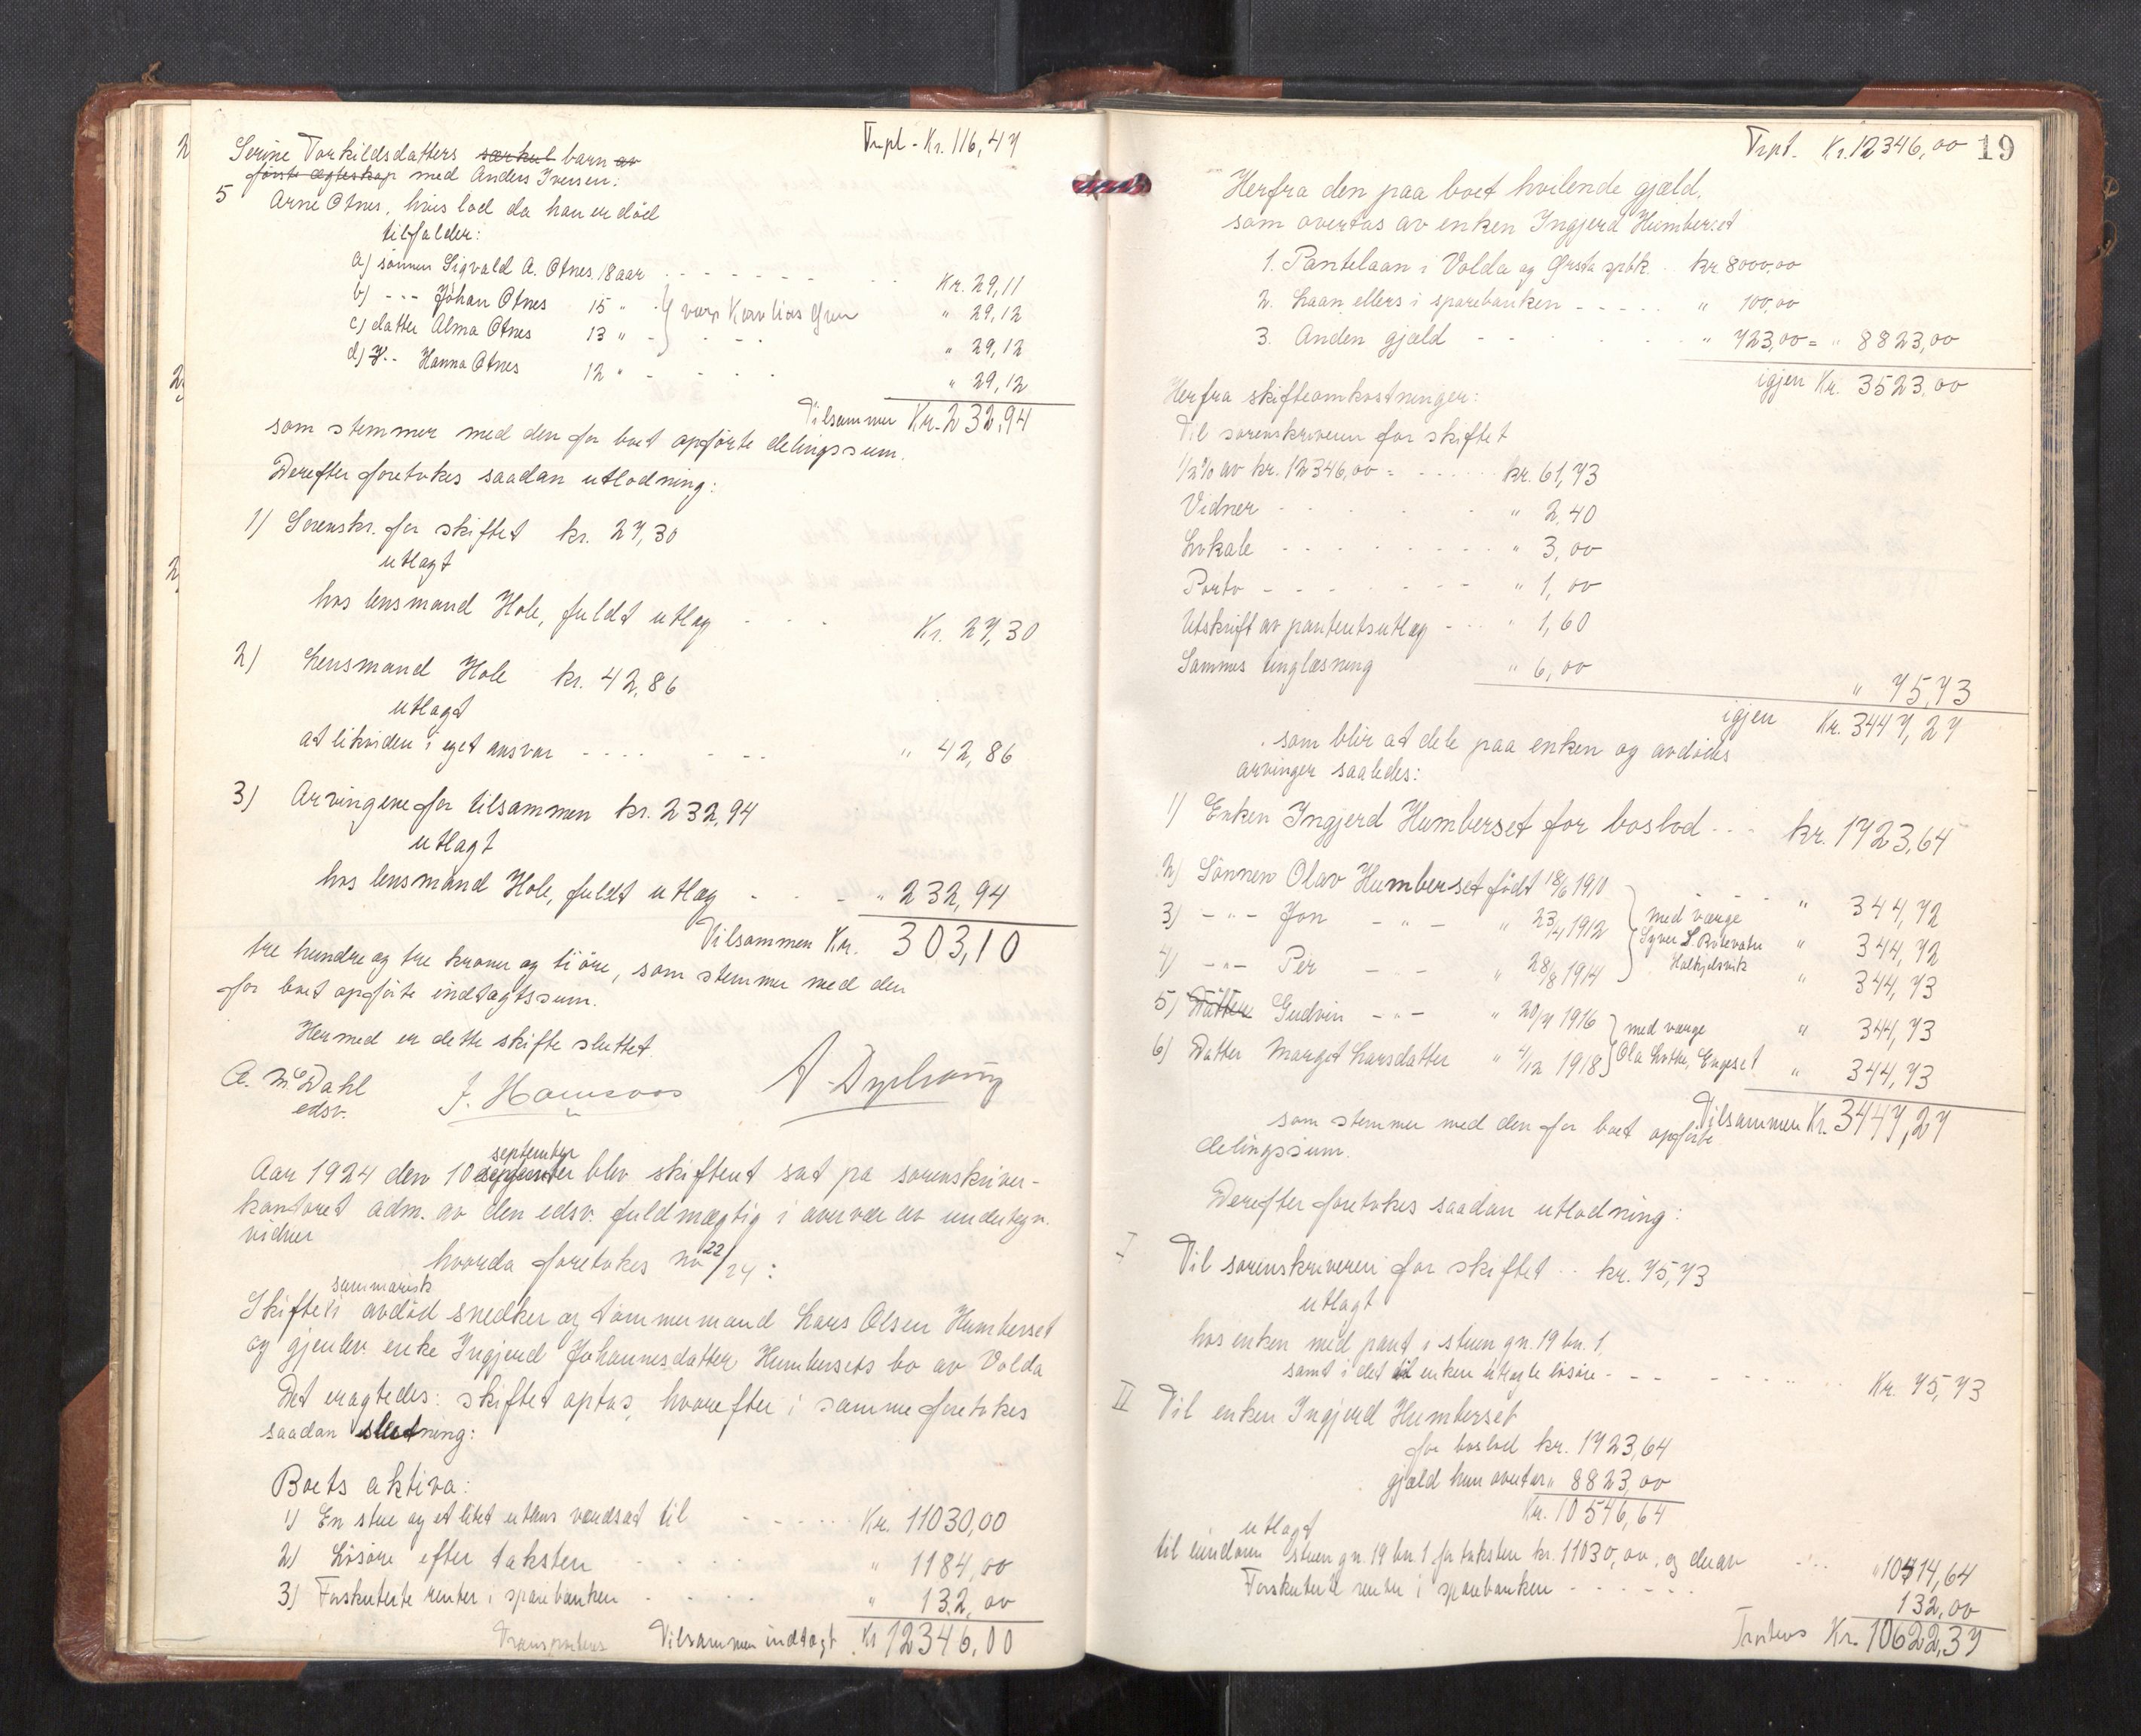 Trpt - Kr. 116,47
Serine Torkildsdatters særkul barn av
første ægteskap med Anders Iversen:
5 Arne Otnes, hvis lod da han er død
tilfalder:
a) sønnen Sigvald A. Otnes 18 aar - - - - - - - Kr. 29,11
b) - - - Johan Otnes 15 " " 29,12
c) datter Alma Otnes 13 " - - - " 29,12
d) - - Hanna Otnes 12 " - - - - " 29,12
Tilsammen Kr. 232,94
som stemmer med den for boet opførte delingssum.
Derefter foretokes saadan utlodning:
1) Sorenskr. for skiftet kr. 27,30
utlagt
hos lensmand Hole, fuldt utlæg - - - Kr. 27,30
2) Lensmand Hole kr. 42,86
utlagt
at likviden i eget ansvar - - - - - - " 42,86
3) Arvingene for tilsammen kr. 232,94
utlagt
hos lensmand Hole, fuldt utlæg - - - " 232,94
Tilsammen Kr. 303,10
tre hundre og tre kroner og ti øre, som stemmer med den
for boet opførte indtægtssum.
Hermed er dette skifte sluttet.
A. McDahl
edsv.
september
Aar 1924 den 10 blev skifteret sat pa sorenskriver-
kontoret adm. av den edsv. fuldmægtig i overvær av undertegn.
vidner
hvorda foretokes no 22/24:
summarisk
Skifte i avdød snedker og tømmermand Lars Olsen Humberset
og gjenlev. enke Ingjerd Johannesdatter Humbersets bo av Volda
Det eragtedes: skiftet optas, hvorefter i samme foretokes
saadan slutning:
Boets aktiva:
1) En stue og et litet uthus værdsat til - - - - - Kr. 11030,00
2) Løsøre efter taksten - - - - - " 1184,00
3) Forskuterte renter i sparebanken - - - - " 132,00
Transporteres Tilsammen indtægt Kr 12346,00
Trpt. Kr. 12346,00 19
Herfra den paa boet hvilende gjæld,
som overtas av enken Ingjerd Humberset
1. Pantelaan i Volda og Ørsta spbk. kr 8000,00
2. Laan ellers i sparebanken - - - - - " 100,00
3. Anden gjæld - - - - - " 723,00 = " 8823,00
igjen Kr. 3523,00
Herfra skifteomkostninger:
Til sorenskriveren for skiftet
1/2 % av kr. 12346,00 = - - - - - kr. 61,73
Vidner - - - - - " 2,40
Lokale - - - - - - - " 3,00
Porto - - - - - - - " 1,00
Utskrift av panteutsutlæg - - - " 1,60
Sammes tinglæsning " 6,00
" 75,73
igjen Kr. 3447,27
som blir at dele paa enken og avdødes
arvinger saaledes:
1) Enken Ingjerd Humberset for boslod - - - kr. 1723,64
2) Sønnen Olav Humberset født 18/6 1910 - - - " 344,72
3) - " - Jon - " - " 23/4 1912 med værge " 344,72
Syver S.
4) - " - Per - " - " 28/8 1914 " 344,73
5) Gudvin - " - " 20/7 1916 med værge " 344,73
6) Datter Marget Larsdatter " 4/12 1918 Ola Engeset " 344,73
Tilsammen Kr. 3447,27
som stemmer med den for boet opførte
delingssum.
Derefter foretokes saadan utlodning:
I Til sorenskriveren for skiftet - - kr. 75,73
utlagt
hos enken med pant i stuen gn. 19 bn. 1,
samt i det til enken utlagte løsøre - - - - - - Kr. 75,73
II Til enken Ingjerd Humberset
for boslod kr. 1723,64
gjæld hun overtar " 8823,00
Kr. 10546,64
utlagt
til eiendom stuen gn. 19 bn. 1 for taksten kr. 11030,00, og derav - - - " 10414,64
Forskuterte renter i sparebanken - - - - - - 132,00
Trsteres Kr. 10622,37